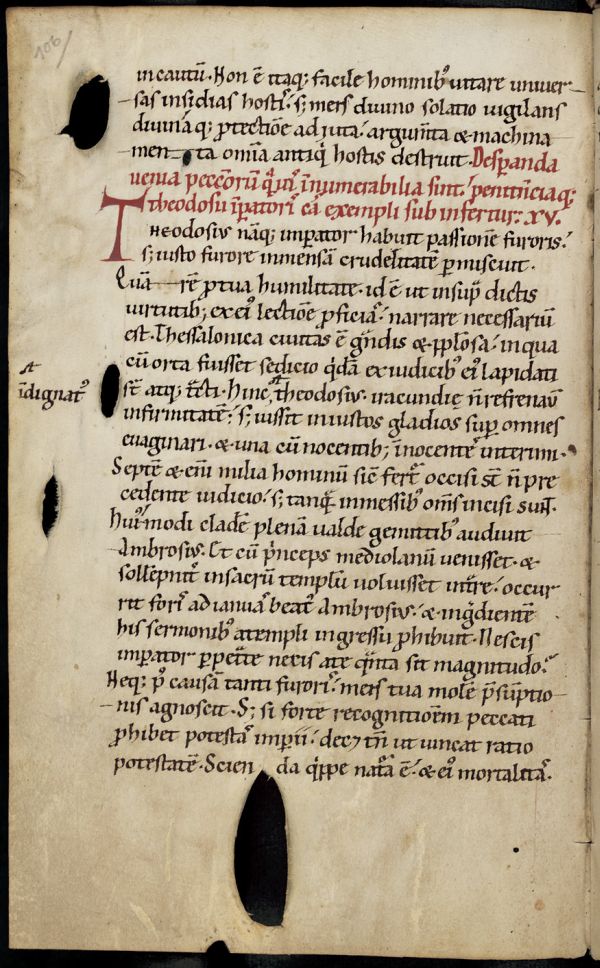 106/
incautū. Non ē itaq; facile hominib' uitare uniuer-
sas insidias hosti'. s; mens diuino solatio uigilans
diuinaq; ꝓtectiōe adiuta. argum̄ta & machina
men ta om̄ia antiq̍ hostis destruit. Desꝑanda
uenia peccatorū q̍uis īnumerabilia sint. penitenciaq;
theodosii īꝑatoris eā exempli subinfertur. XV.
THEodosius nāq; imꝑator habuit passionē furoris.
s; iusto furore inmensā crudelitatē ꝑmiscuit.
Quā rē ꝓ tua humilitate. id ē ut insuꝑ dictis
uirtutib; ex ei' lectiōe ꝓficias. narrare necessariū
est. Thessalonica ciuitas ē grandis & pplosa. in qua
cū orta fuisset sedicio q̍dā ex iudicib' ei' lapidati
st̄ atq; tracti. Hinc theodosius. iracundię n̄ refrenauit
indignat'
infirmitatē. s; iussit iniustos gladios suꝑ omnes
euaginari. & una cū nocentib; īnocentes interimi.
Septē & eni milia hominū sic fert' occisi st̄ n̄ pre
cedente iudicio. s; tanq̄ inmessib' om̄s incisi sunt.
Hui'modi cladē plenā ualde gemitib' audiuit
Ambrosius. Et cū p̍nceps mediolanū uenisset. &
sollēpnit' in sacrū templū uoluisset int're. occur
rit foris ad ianuā beat' Ambrosius. & ing̍dientē
his sermonib' a templi ingressu ꝓhibuit. Nescis
imꝑator ꝑpetratę necis a te quanta sit magnitudo.
Neq; p' causā tanti furoris. mens tua molē p̄sūptio
nis agnoscit. S; si forte recognitiōem peccati
ꝓhibet potestas imꝑii. dec& tn̄ ut uincat ratio
potestatē. Scien da q̍ppe natura ē. & ei' mortalitas.